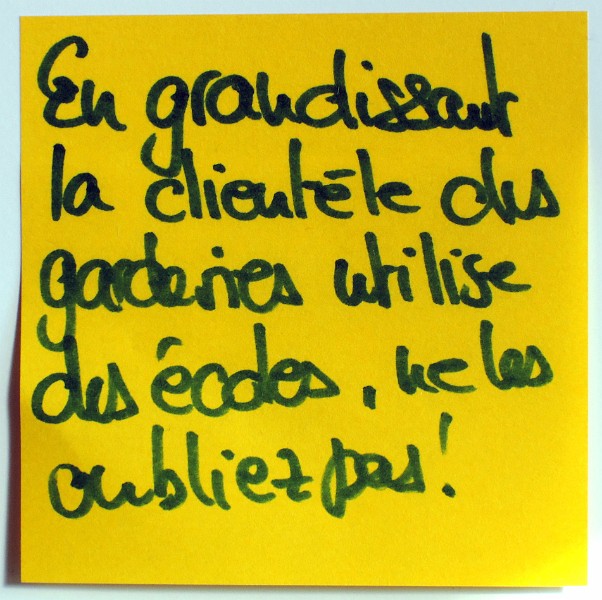 En grandissant
la clientèle des
garderies utilise
des écoles, ne les
oubliez pas!